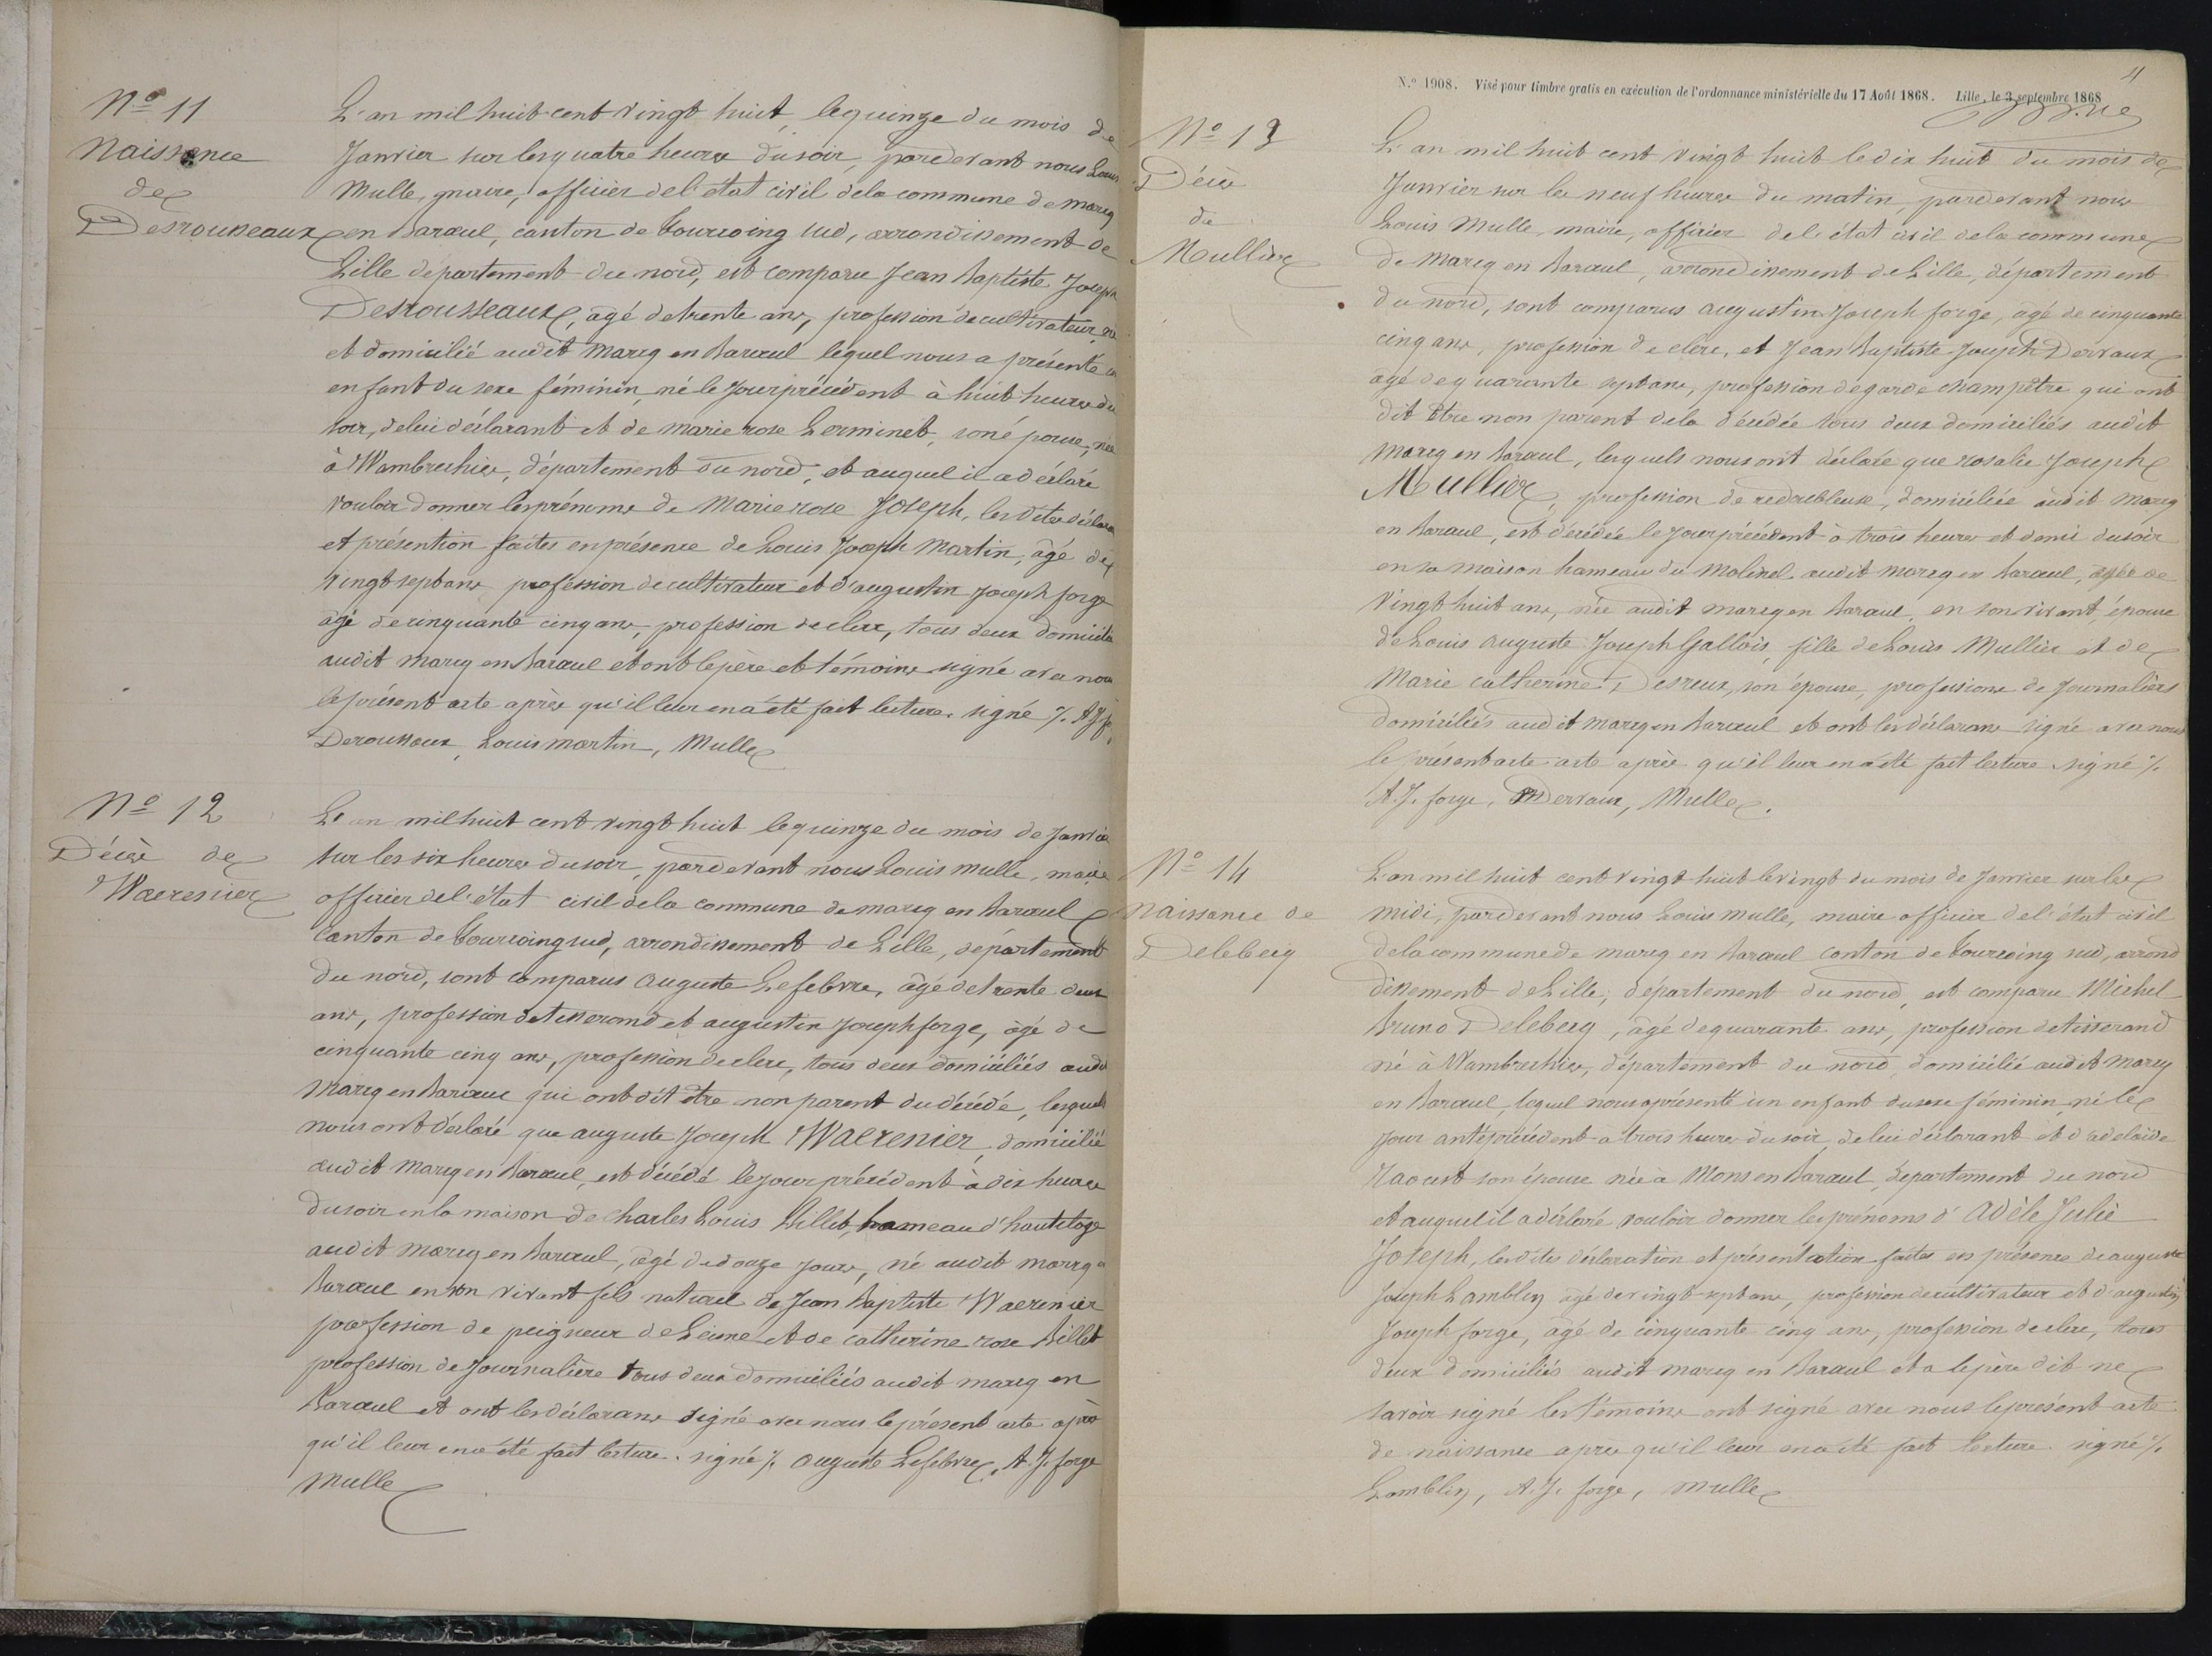 N.º 11
Naissance
de
Desrousseaux
L'an mil huit cent vingt huit, le quinze du mois de
Janvier sur les quatre heures du soir, pardevant nous Louis
Mulle, maire, officier de l'état civil de la commune de marcq
en Baraeul, canton de Tourcoing sud, arrondissement de
Lille département du nord, est comparu Jean Baptiste Joseph
Desrousseaux, agé de trente ans, profession de cultivateur, né
et domicilié audit marcq en Baraeul lequel nous a présenté un
enfant du sexe féminin, né le Jour précédent à huit heures du
soir, de lui déclarant et de marie rose Herminet, son épouse, née
à Wambrechies, département du nord, et auquel il a déclaré
vouloir donner les prénoms de Marie rose Joseph, les dites déclara
et présention faites en présence de Louis Joseph Martin, âgé de
vingt sept ans profession de cultivateur et d'augustin Joseph forge
âgé de cinquante cinq ans, profession de clerc, tous deux domicilié
audit marcq en Baraeul et ont le père et témoins signé avec nous
le présent acte après qu'il leur en a été fait lecture. signé %. A J fo
Derousseaux, Louis martin, Mulle
N.º 12
Décès de
Waeresnier
L'an mil huit cent vingt huit le quinze du mois de Janvier
sur les six heures du soir, pardevant nous Louis mulle, maire
officier de l'état civil de la commune de marcq en Baraeul
Canton de Tourcoing sud, arrondissement de Lille, département
du nord, sont comparus auguste Lefebvre, âgé de trente deux
ans, profession de tisserand et augustin Joseph forge, âgé de
cinquante cinq ans, profession de clerc, tous deux domiciliés audit
marcq en Baraeul qui ont dit être non parent du décédé, lesquels
nous ont déclaré que auguste Joseph Waeresnier, domicilié
audit marcq en Baraeul, est décédé le jour précédent à dix heures
du soir en la maison de Charles Louis Billet, hameau d'hauteloge
audit marcq en Baraeul, agé de douze jours, né audit marcq en
Baraeul en son vivant fils naturel de Jean Baptiste Waeresnier
profession de peigneur de Leine et de catherine rose Billet
profession de Journalière tous deux domiciliés audit marcq en
Baraeul et ont les déclarans signé avec nous le présent acte après
qu'il leur en a été fait lecture. signé %. auguste Lefebvre, A. J. forge
Mulle
11
N.º 1908. Visé pour timbre gratis en exécution de l'ordonnance ministérielle du 17 Août 1868. Lille, le 3 septembre 1868
N.º 13
Décès
de
Mullier
L'an mil huit cent vingt huit le dix huit du mois de
Janvier sur les neuf heures du matin, pardevant nous
Louis Mulle, maire, officier de l'état civil de la commune
de Marcq en Baraeul, arrondissement de Lille, département
du nord, sont comparus augustin Joseph forge, âgé de cinquante
cinq ans, profession de clerc, et Jean Baptiste Joseph Dervaux
âgé de quarante sept ans, profession de garde champêtre qui ont
dit être non parent de la décédée tous deux domiciliés audit
marcq en Baraeul, lesquels nous ont déclaré que rosalie Joseph
Mullier, profession de redoubleuse, domiciliée audit marcq
en Baraeul, est décédée le jour précédent à trois heures et demi du soir
en sa maison hameau du Molinel audit marcq en Baraeul, agée de
vingt huit ans, née audit marcq en Baraeul, en son vivant, épouse
de Louis auguste Joseph Gallois, fille de Louis Mullier et de
Marie catherine Desreux, son épouse, professions de Journaliers
domiciliés audit marcq en Baraeul et ont les déclarans signé avec nous
le présent acte acte après qu'il leur en a été fait lecture signé %.
A. J. forge, Dervaux, Mulle.
N.º 14
Naissance de
Delebecq
L'an mil huit cent vingt huit le vingt du mois de Janvier sur les
midi, pardevant nous Louis mulle, maire officier de l'état civil
de la commune de marcq en Baraeul canton de Tourcoing sud, arron
dissement de Lille, département du nord, est comparu Michel
Bruno Delebecq, âgé de quarante ans, profession de tisserand
né à Wambrechies, département du nord, domicilié audit Marcq
en Baraeul, lequel nous a présenté un enfant du sexe féminin, né le
jour antéprécédent à trois heures du soir, de lui déclarant et d'adelaïde
son épouse née à Mons en Baraeul, département du nord
et auquel il a déclaré vouloir donner les prénoms d'Adèle Julie
Joseph, les dites déclaration et présentation faites en présence de auguste
Joseph Lamblin agé de vingt sept ans, profession de cultivateur et d'augustin
Joseph forge, âgé de cinquante cinq ans, profession de clerc, tous
deux domiciliés audit marcq en Baraeul et a le père dit ne
savoir signé les témoins ont signé avec nous le présent acte
de naissance après qu'il leur en a été fait lecture. signé %.
Lamblin, A. J. forge, mulle